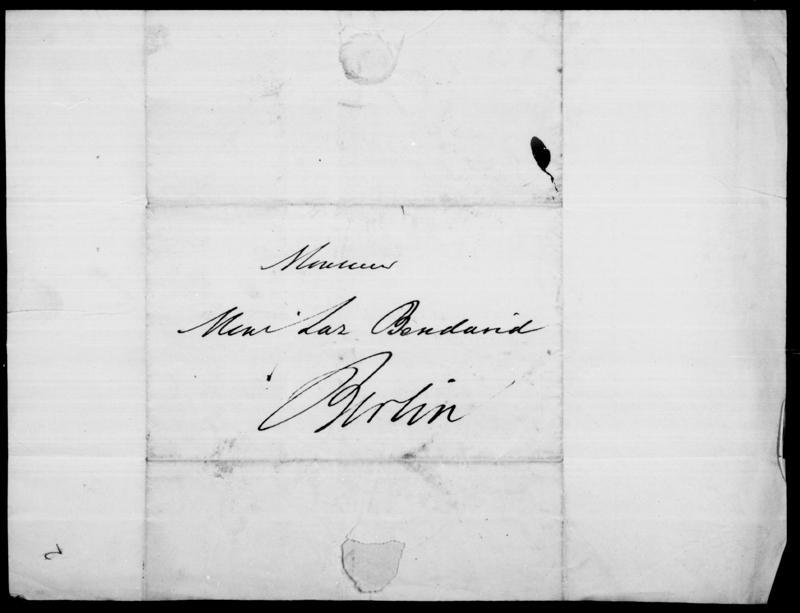 Monsieur
Monr Laz Bendavid
Berlin
2